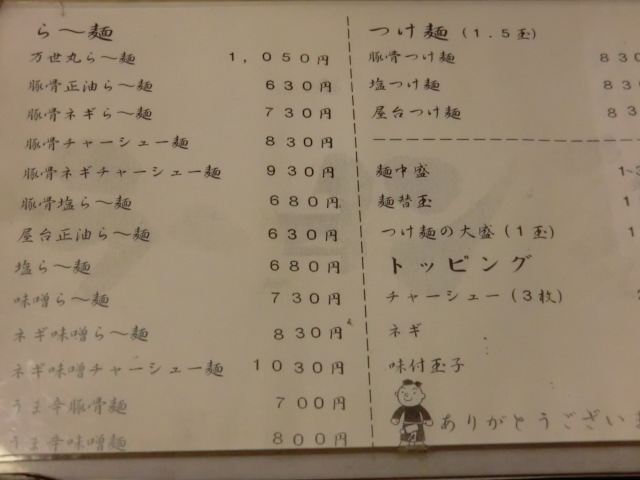 ら〜麺
万世丸ら〜麺 1,050円
豚骨正油ら〜麺 630円
豚骨ネギら〜麺 730円
豚骨チャーシュー麺 830円
豚骨ネギチャーシュー麺 930円
豚骨塩ら〜麺 680円
屋台正油ら〜麺 630円
塩ら〜麺 680円
味噌ら〜麺 730円
ネギ味噌ら〜麺 830円
ネギ味噌チャーシュー麺 1030円
うま辛豚骨麺 700円
うま辛味噌麺 800円
つけ麺(1.5玉)
豚骨つけ麺 830
塩つけ麺 83
屋台つけ麺 83
麺中盛 1
麺替玉 1
つけ麺の大盛(1玉) 1
トッピング
チャーシュー(3枚)
ネギ
味付玉子
ありがとうござい